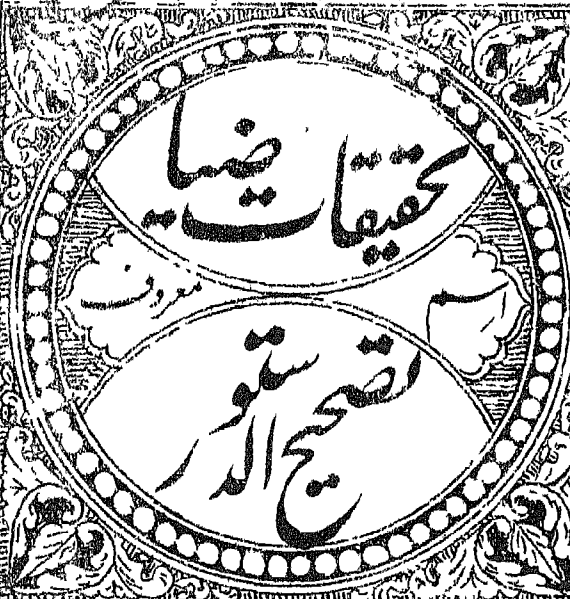 تحقیقات ضیا
اسم معروف
تصحیح الدستور